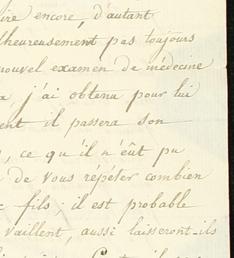 ire) encore, d'autant
lheureusement pas toujours
nouvel examen de médecine
j'ai obtenu pour lui
ent il passera son
, ce qu'il n'eût pu
de vous répéter combien
fils : il est probable
vaillent, aussi laisseront-ils